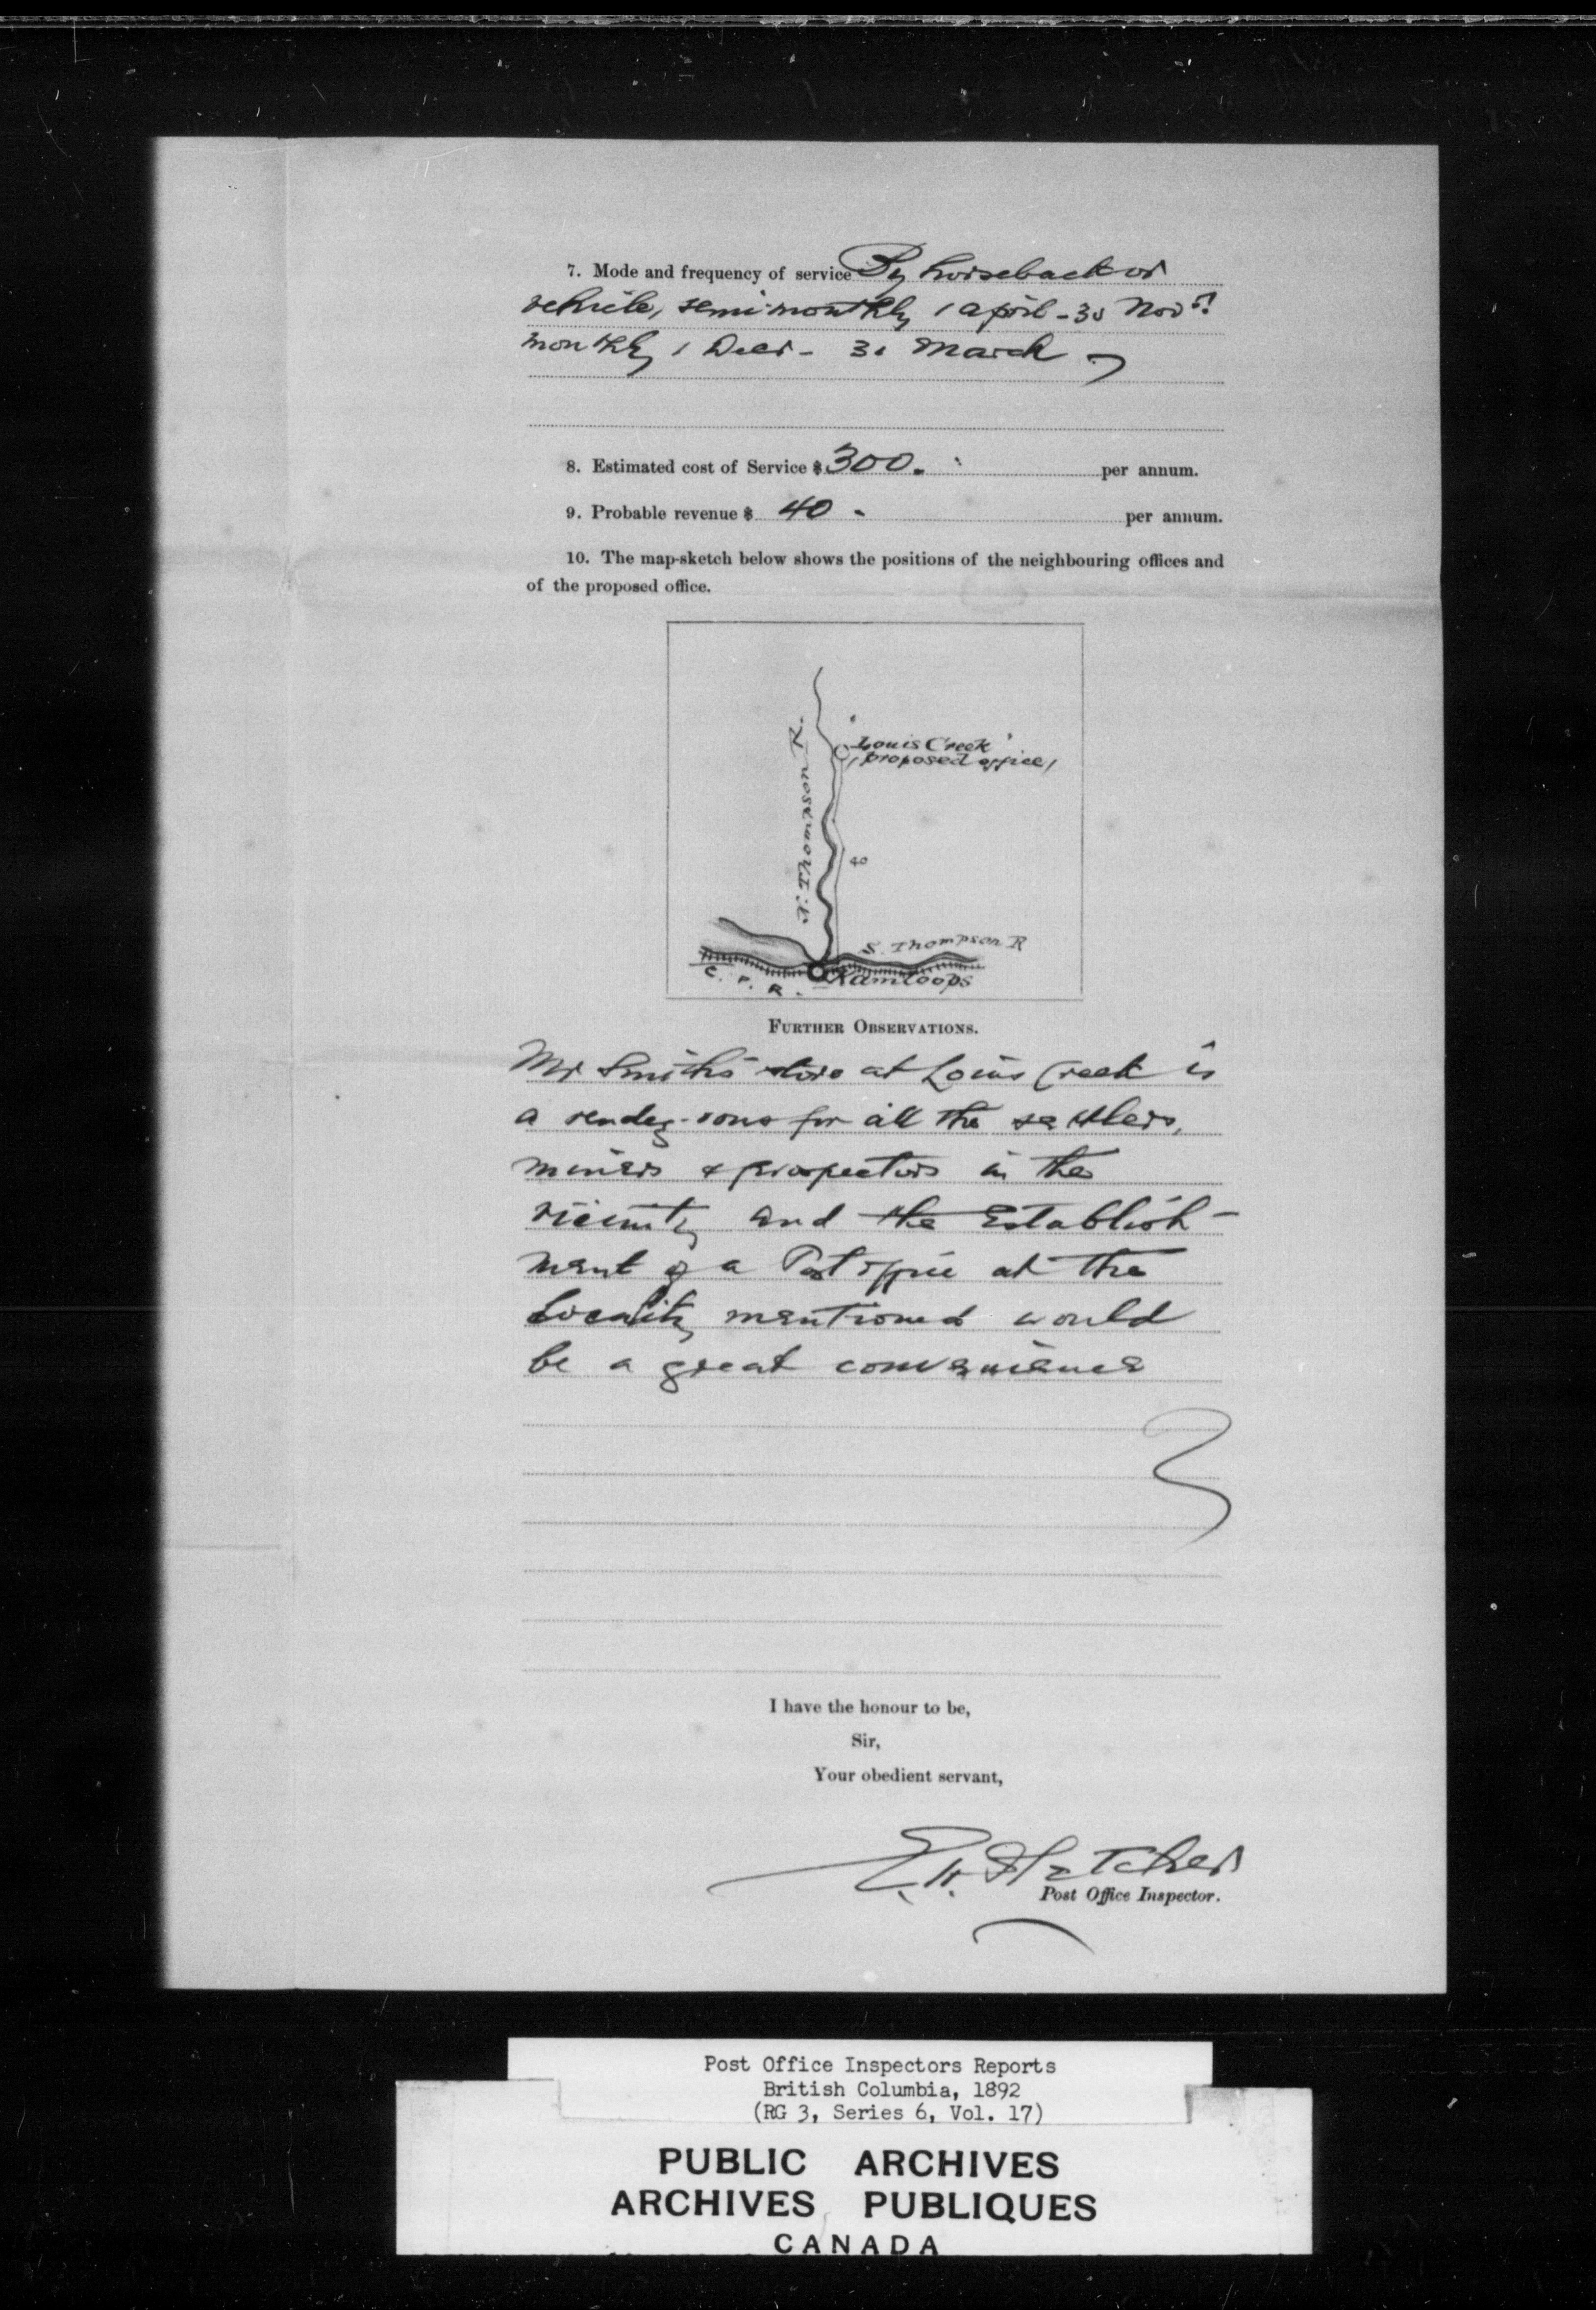 7. Mode and frequency of service By horseback or
vehicle, semi-monthly 1 april - 30 Novr.
monthly 1 Decr - 31 March
8. Estimated cost of Service $ 300. per annum.
9. Probable revenue $ 40 - per annum.
10. The map-sketch below shows the positions of the neighbouring offices and
of the proposed office.
"Louis Creek"
(proposed office)
N. Thompson R.
40
S. Thompson R
C. P. R.
Kamloops
FURTHER OBSERVATIONS.
Mr Smith's store at Louis Creek is
a rendez-vous for all the settlers,
miners & prospectors in the
vicinity and the Establish-
ment of a Post office at the
Locality mentioned would
be a great convenience
I have the honour to be,
Sir,
Your obedient servant,
E. H. Fletcher
Post Office Inspector.
Post Office Inspectors Reports
British Columbia, 1892
(RG 3, Series 6, Vol. 17)
PUBLIC ARCHIVES
ARCHIVES PUBLIQUES
CANADA